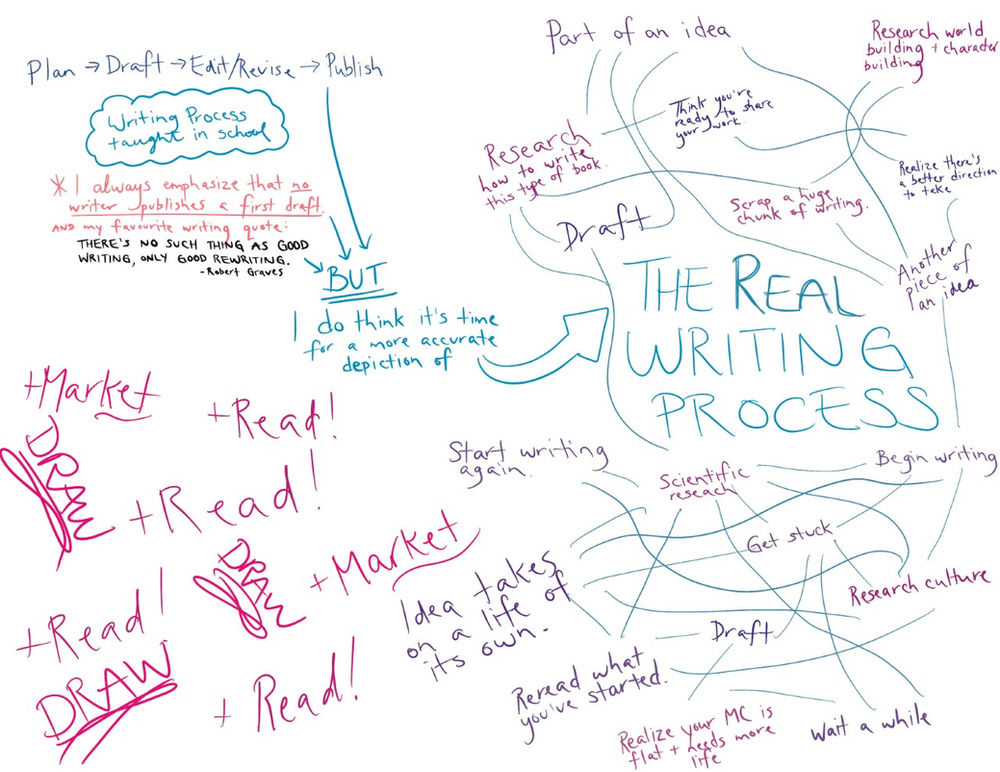 Plan → Draft → Edit/Revise → Publish
Writing Process
taught in school
* I always emphasize that no
writer publishes a first draft.
AND my favourite writing quote:
THERE'S NO SUCH THING AS GOOD
WRITING, ONLY GOOD REWRITING.
-Robert Graves
BUT
I do think it's time
for a more accurate
depiction of
THE REAL
WRITING
PROCESS
Part of an idea
Research world
building + character
building
Think you're
ready to share
your work.
Research
how to write
this type of book.
Realize there's
a better direction
to take
Scrap a huge
chunk of writing.
Draft
Another
piece of
an idea
Start writing
again.
Scientific
reseach
Begin writing
Get stuck
Idea takes
on a life of
its own.
Research culture
Draft
Reread what
you've started.
Realize your MC is
flat + needs more
life
Wait a while
+Market
DRAW
+Read!
+Read!
DRAW
+Market
+Read!
DRAW
+ Read!